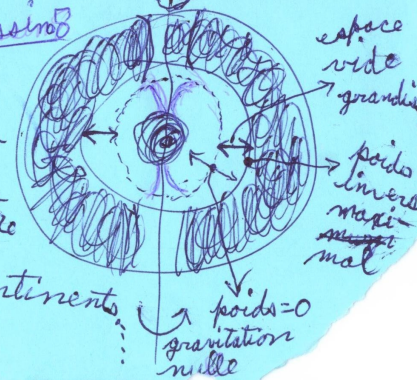 ssin8
espace
vide
grandis
poids
invers
maxi-
mal
ntinents
poids=0
gravitation
nulle